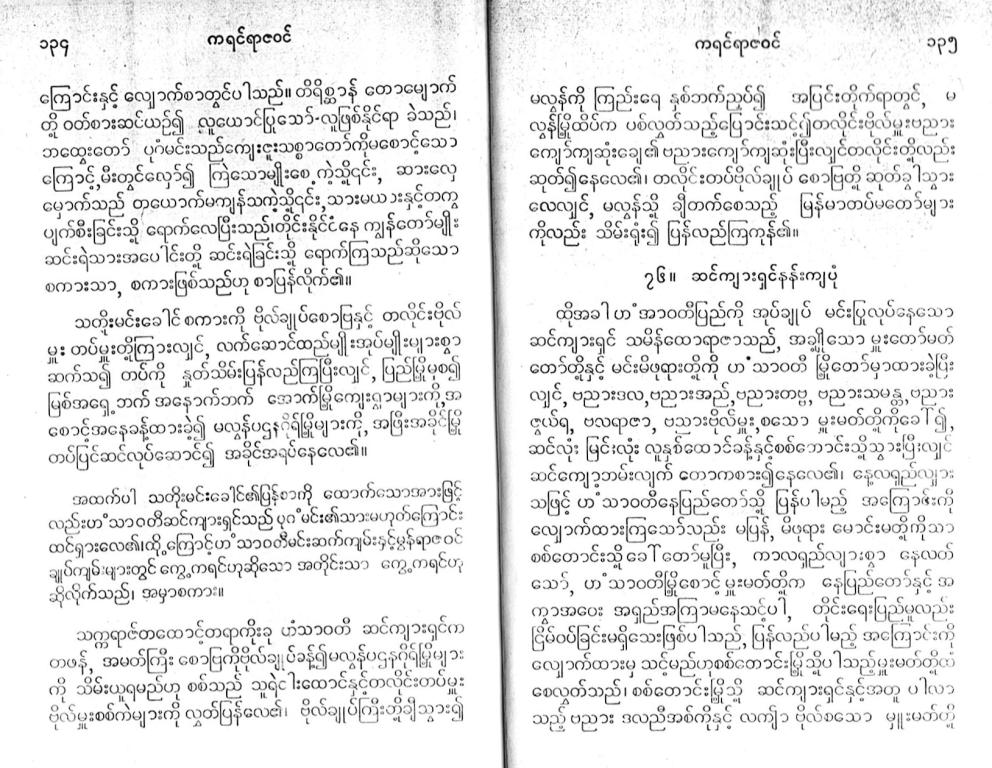 ၁၃၄
ကရင်ရာဇဝင်
ကြောင်းနှင့် လျှောက်စာတွင်ပါသည်။ တိရိစ္ဆာန် တောမျောက်
တို့ ဝတ်စားဆင်ယဉ်၍ လူယောင်ပြုသော်-လူဖြစ်နိုင်ရာ ခဲသည်၊
ဘထွေးတော် ပုဂံမင်းသည်ကျေးဇူးသစ္စာတော်ကိုမစောင့်သော
ကြောင့်,မီးတွင်လှော်၍ ကြဲသောမျိုးစေ့ကဲ့သို့၎င်း, ဆားလှေ
မှောက်သည် တယောက်မကျန်သကဲ့သို့၎င်း,သားမယားနှင့်တကွ
ပျက်စီးခြင်းသို့ ရောက်လေပြီးသည်၊တိုင်းနိုင်ငံနေ ကျွန်တော်မျိုး
ဆင်းရဲသားအပေါင်းတို့ ဆင်းရဲခြင်းသို့ ရောက်ကြသည်ဆိုသော
စကားသာ, စကားဖြစ်သည်ဟု စာပြန်လိုက်၏။
သတိုးမင်းခေါင် စကားကို ဗိုလ်ချုပ်စောဗြနှင့် တလိုင်းဗိုလ်
မှူး တပ်မှူးတို့ကြားလျှင်, လက်ဆောင်ထည်မျိုးအုပ်မျိုးများစွာ
ဆက်သ၍ တပ်ကို နှုတ်သိမ်းပြန်လည်ကြပြီးလျှင်, ပြည်မြို့မှစ၍
မြစ်အရှေ့ဘက် အနောက်ဘက် အောက်မြို့ကျေးရွာများကို,အ
စောင့်အနေခန့်ထားခဲ့၍ မလွန်ပဌနဂိုရ်မြို့များကို, အဖြိုးအခိုင်မြို့
တပ်ပြင်ဆင်လုပ်ဆောင်၍ အခိုင်အရပ်နေလေ၏။
အထက်ပါ သတိုးမင်းခေါင်၏ပြန်စာကို ထောက်သောအားဖြင့်
လည်းဟံသာဝတီဆင်ကျားရှင်သည် ပုဂံမင်း၏သားမဟုတ်ကြောင်း
ထင်ရှားလေ၏၊ထို့ကြောင့်ဟံသာဝတီမင်းဆက်ကျမ်းနှင့်မွန်ရာဇဝင်
ချုပ်ကျမ်းများတွင် ကွေ့ကရင်ဟုဆိုသော အတိုင်းသာ ကွေ့ကရင်ဟု
ဆိုလိုက်သည်, အမှာစကား။
သက္ကရာဇ်တထောင့်တရာကိုးခု ဟံသာဝတီ ဆင်ကျားရှင်က
တဖန်, အမတ်ကြီး စောဗြကိုဗိုလ်ချုပ်ခန့်၍မလွန်ပဌနဂိုရ်မြို့များ
ကို သိမ်းယူရမည်ဟု စစ်သည် သူရဲငါးထောင်နှင့်တလိုင်းတပ်မှူး
ဗိုလ်မှူးစစ်ကဲများကို လွှတ်ပြန်လေ၏၊ ဗိုလ်ချုပ်ကြီးတို့ချီသွား၍
ကရင်ရာဇဝင်
၁၃၅
မလွန်ကို ကြည်းရေ နှစ်ဘက်ညှပ်၍ အပြင်းတိုက်ရာတွင်, မ
လွန်မြို့ထိပ်က ပစ်လွှတ်သည့်ပြောင်းသင့်၍တလိုင်းဗိုလ်မှူးဗညား
ကျော်ကျဆုံးချေ၏ ဗညားကျော်ကျဆုံးပြီးလျှင်တလိုင်းတို့လည်း
ဆုတ်၍နေလေ၏၊ တလိုင်းတပ်ဗိုလ်ချုပ် စောဗြတို့ ဆုတ်ခွါသွား
လေလျှင်, မလွန်သို့ ချီတက်စေသည့် မြန်မာတပ်မတော်များ
ကိုလည်း သိမ်းရုံး၍ ပြန်လည်ကြကုန်၏။
၇၆။ ဆင်ကျားရှင်နန်းကျပုံ
ထိုအခါ ဟံအာဝတီပြည်ကို အုပ်ချုပ် မင်းပြုလုပ်နေသော
ဆင်ကျားရှင် သမိန်ထောရာဇာသည်, အချို့သော မှူးတော်မတ်
တော်တို့နှင့် မင်းမိဖုရားတို့ကို ဟံသာဝတီ မြို့တော်မှာထားခဲ့ပြီး
လျှင်, ဗညားဒလ,ဗညားအည်,ဗညားတဗ္ဗ, ဗညားသမန္တ,ဗညား
ဇွယ်ရ, ဗလရာဇာ, ဗညားဗိုလ်မှူး,စသော မှူးမတ်တို့ကိုခေါ်၍,
ဆင်လုံး မြင်းလုံး လူနှစ်ထောင်ခန့်နှင့်စစ်တောင်းသို့သွားပြီးလျှင်
ဆင်ကျော့ဘမ်းလျက် တောကစား၍နေလေ၏၊ နေ့လရှည်လျှား
သဖြင့် ဟံသာဝတီနေပြည်တော်သို့ ပြန်ပါမည့် အကြောင်းကို
လျှောက်ထားကြသော်လည်း မပြန်, မိဖုရား မောင်းမတို့ကိုသာ
စစ်တောင်းသို့ခေါ်တော်မူပြီး, ကာလရှည်လျားစွာ နေလတ်
သော်, ဟံသာဝတီမြို့စောင့် မှူးမတ်တို့က နေပြည်တော်နှင့် အ
ကွာအဝေး အရှည်အကြာမနေသင့်ပါ, တိုင်းရေးပြည်မူလည်း
ငြိမ်ဝပ်ခြင်းမရှိသေးဖြစ်ပါသည်,ပြန်လည်ပါမည့် အကြောင်းကို
လျှောက်ထားမှ သင့်မည်ဟုစစ်တောင်းမြို့သို့ပါသည့်မှူးမတ်တို့ထံ
စေလွှတ်သည်၊ စစ်တောင်းမြို့သို့ ဆင်ကျားရှင်နှင့်အတူ ပါလာ
သည့် ဗညား ဒလညီအစ်ကိုနှင့် လကျ်ာ ဗိုလ်စသော မှူးမတ်တို့